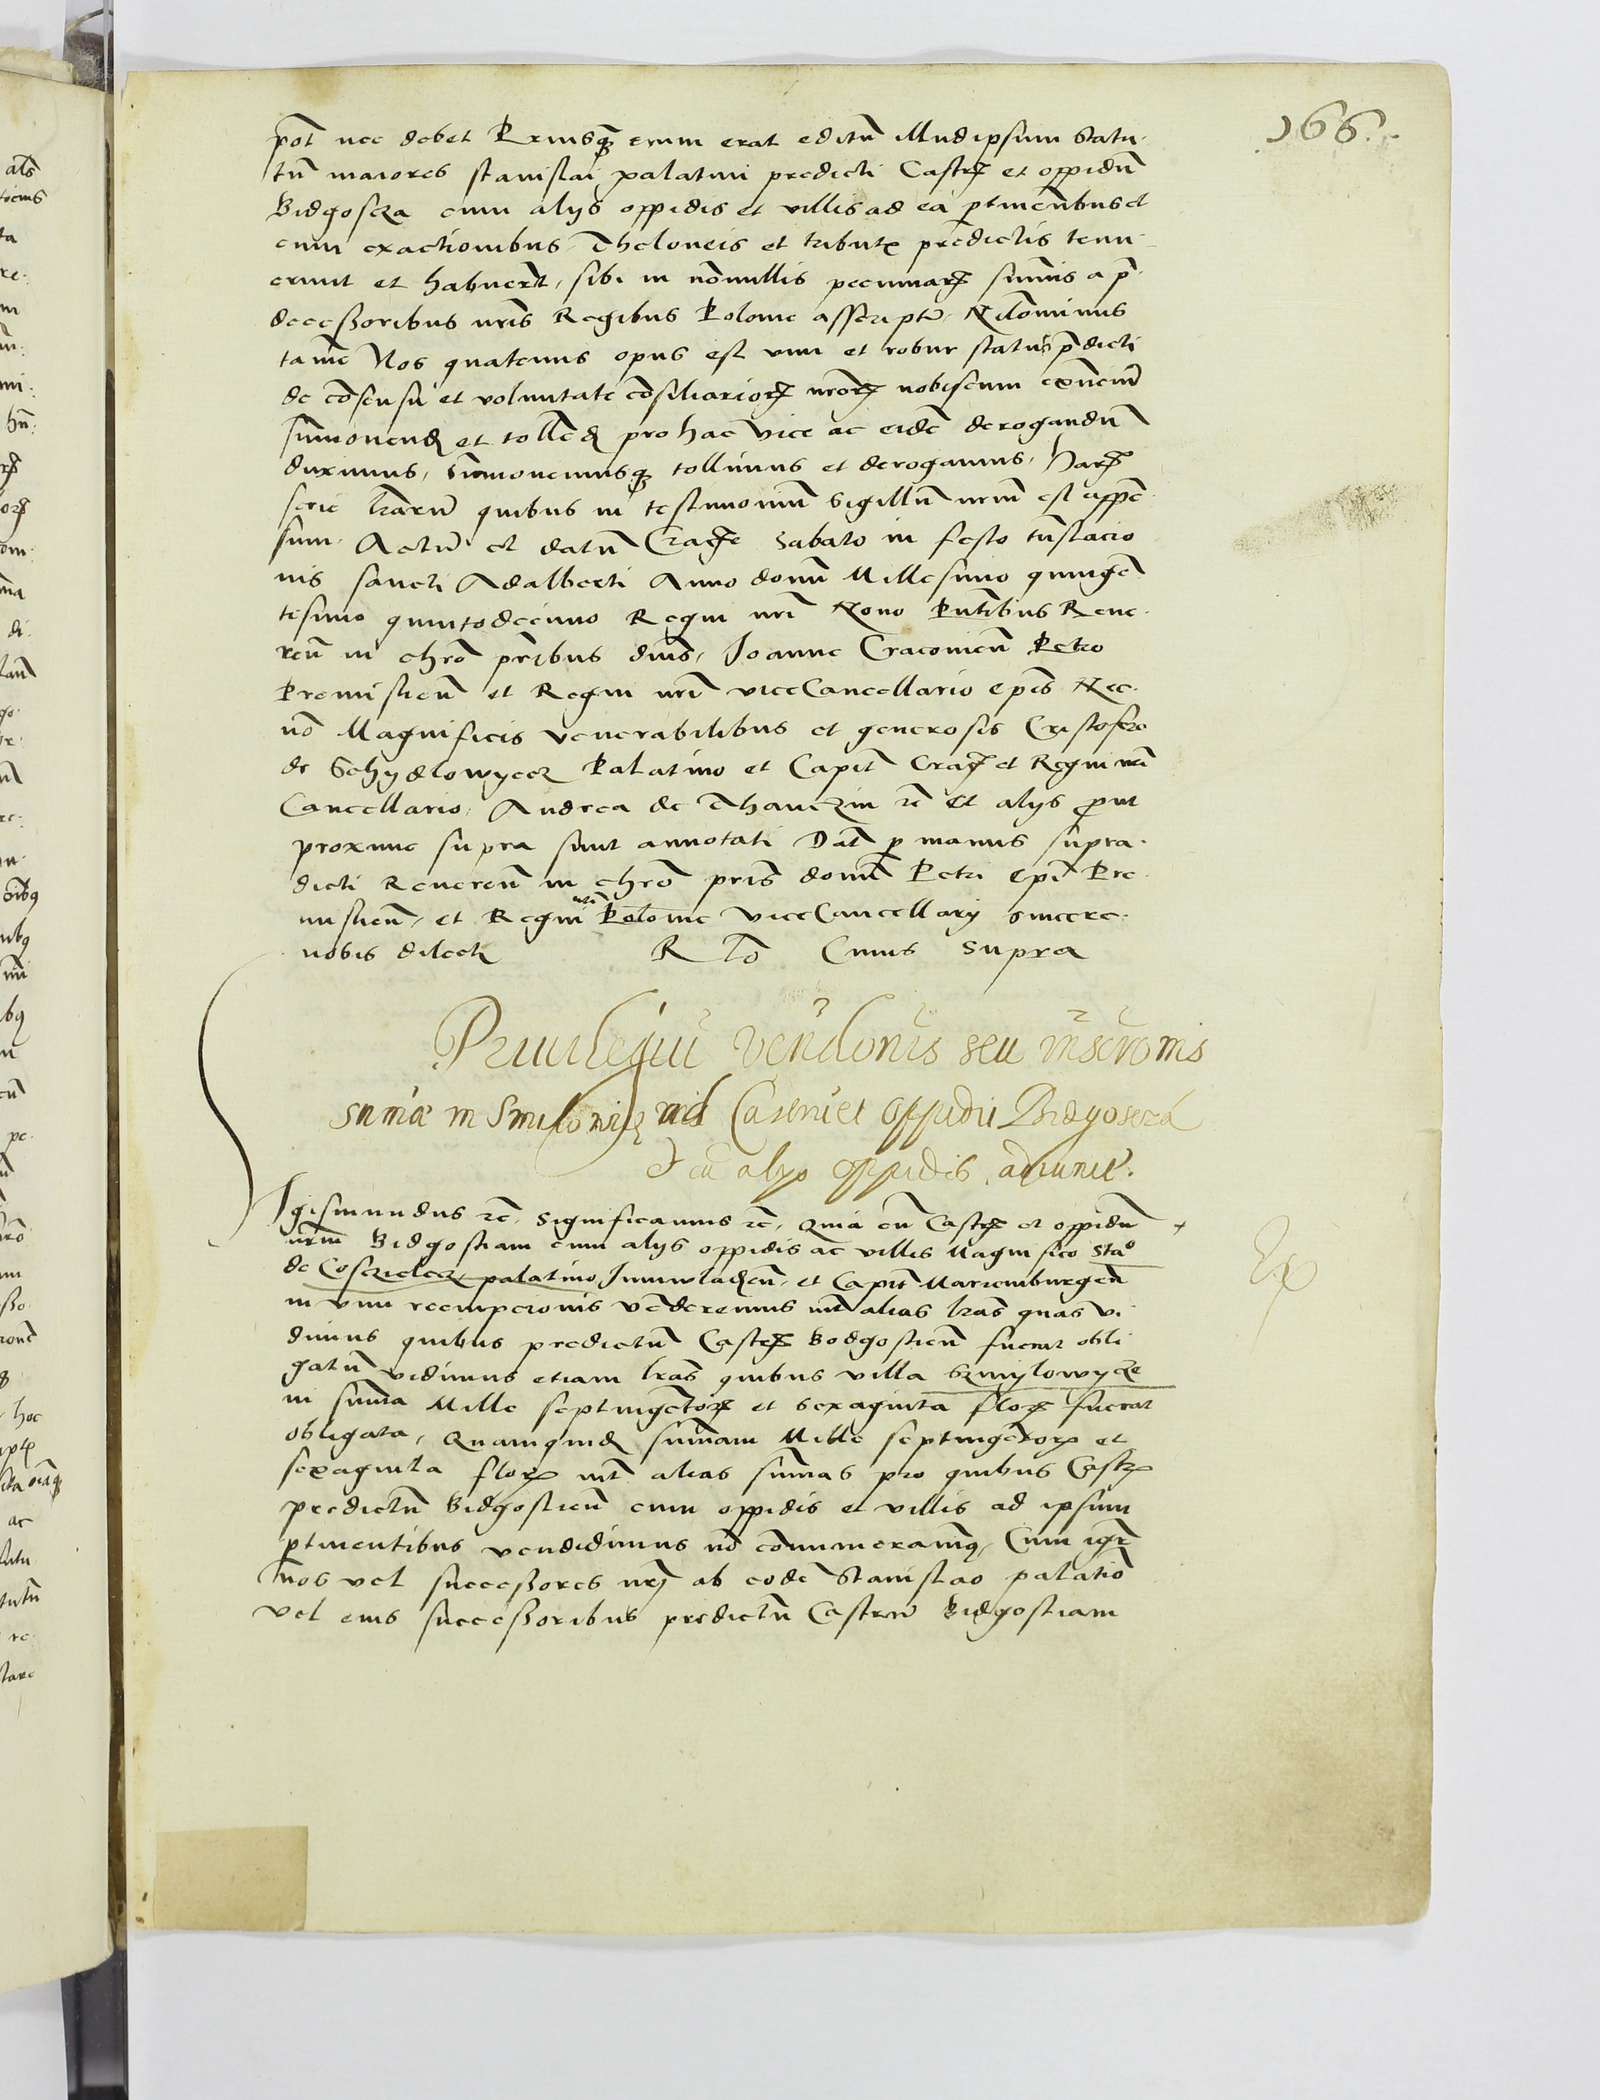 166.
pōt nec debet Priusq̄ȝ enim erat editū illud ipsum Statu-
tū maiores stanislai palatini predicti Castrȝ et oppidū
Bidgoscza cum alijs oppidis et villis ad ea ptinen̄bus et
cum exactionibus Theloneis et tributꝭ predictis tenu-
erunt et habuer̄t, sibi in nōnullis pecuniarȝ sum̄is a p̄-
decessoribus nr̄is Regibus Polonie asscriptꝭ Nilominus
tamē Nos quatenus opus est vim et robur statuti p̄dicti
de cōsensu et voluntate cōsiliariorȝ nr̄orȝ nobiscum
sūmouend et tollēd pro hac vice ac eidē derogandū
duximus, sūmouemusqȝ tollimus et derogamus, harȝ
serie lr̄arū quibus in testimoniū Sigillū nr̄m est appē-
sum. Actū et datū Crac̄ Sabato in festo trāslacio
nis sancti Adalberti Anno domī Millesimo quingē-
tesimo quintodecimo Regni nr̄i Nono Pn̄tibus Reue-
ren̄ in chrō pr̄ibus dn̄is, Joanne Cracouien̄ Petro
Premislien̄ et Regni nr̄i viceCancellario ep̄is Nec-
nō Magnificis venerabilibus et generosis Cristofero
de Schydlowyecz Palatino et Capit̄ Crac̄ et Regni nr̄i
Cancellario, Andrea de Thanczin ꝛc̄ Et alijs prout
proxime supra sunt annotati Dat̄ p manus supra-
dicti Reueren̄ in chrō pr̄is domī Petri ep̄i Pre-
mislien̄, et Regni nr̄i Polonie viceCancellarij sincere
nobis dilecti R̄ lō Cuius supra
Priuilegiū vendōnis seu inscrōnis
sum̄æ in Castri et Oppidū Bidgoscza
Et cū alijs oppidis adiunctꝭ.
Igismundus ꝛc̄. Significamus ꝛc̄. Quia cū Castrȝ et oppidū +
nr̄m Bidgostiam cum alijs oppidis ac villis Magnifico Sta⁰
de Cosczielecz palatino Juniwladien̄, et Capit̄ Mariemburgen̄
in vim reempcionis vēderemus int̄ alias lr̄as quas vi
dimus quibus predictū Castrȝ Bidgostien̄ fuerat obli
gatū vidimus etiam lr̄as quibus villa Szmylowycze
in sum̄a Mille septingētorȝ et sexaginta florȝ fuerat
obligata, Quamquid̄ sum̄am Mille septingētorȝ et
sexaginta florȝ int̄ alias sum̄as pro quibus Castrȝ
predictū Bidgostien̄ cum oppidis et villis ad ipsum
ptinentibus vendidimus nō connumeramꝰ, Cum igr̄
nos vel successores nr̄j ab eodē Stanislao palatīo
vel eius successoribus predictū Castrū Bidgostiam